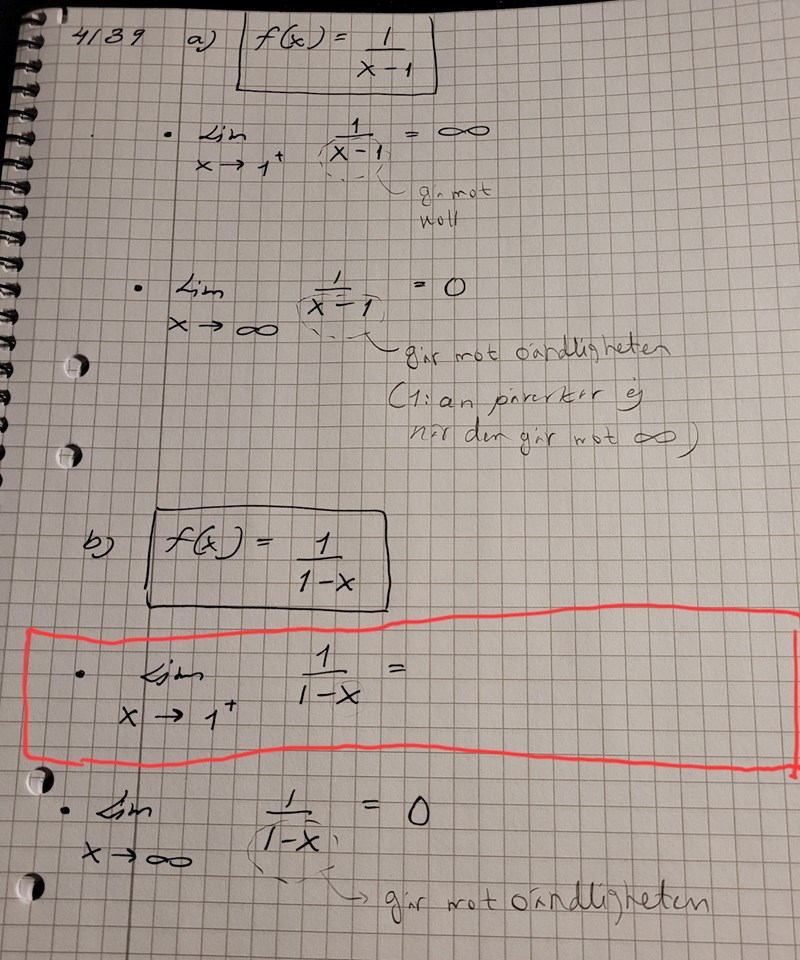 4139 a) f(x) = 1/(x-1)
• Lim x → 1⁺ 1/(x-1) = ∞
går mot
noll
• Lim x → ∞ 1/(x-1) = 0
går mot oändligheten
(1:an påverkar ej
när den går mot ∞)
b) f(x) = 1/(1-x)
• Lim x → 1⁺ 1/(1-x) =
• Lim x → ∞ 1/(1-x) = 0
går mot oändligheten